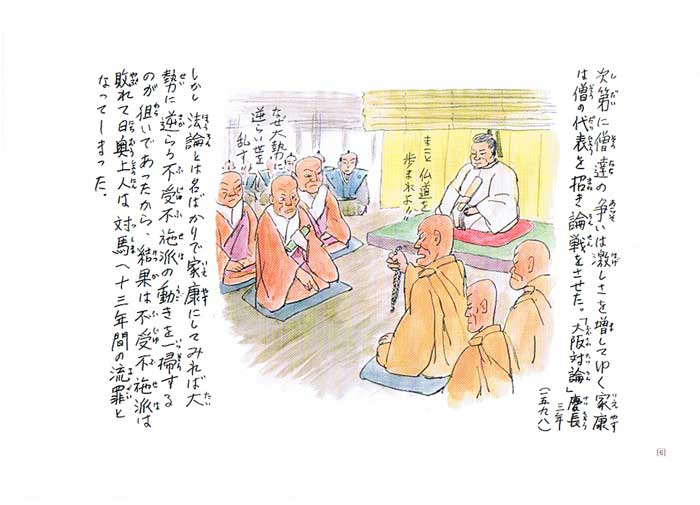 次第に僧達の争いは激しさを増してゆく家康
は僧の代表を招き論戦をさせた。「大阪対論」慶長
三年
(一五九八)
まこと仏道を
歩まれよ!!
なぜ大勢に
逆らい世を
乱す!!
しかし法論とは名ばかりで家康にしてみれば大
勢に逆らう不受不施派の動きを一掃する
のが狙いであったから、結果は不受不施派は
敗れて日奥上人は対馬へ十三年間の流罪と
なってしまった。
[6]